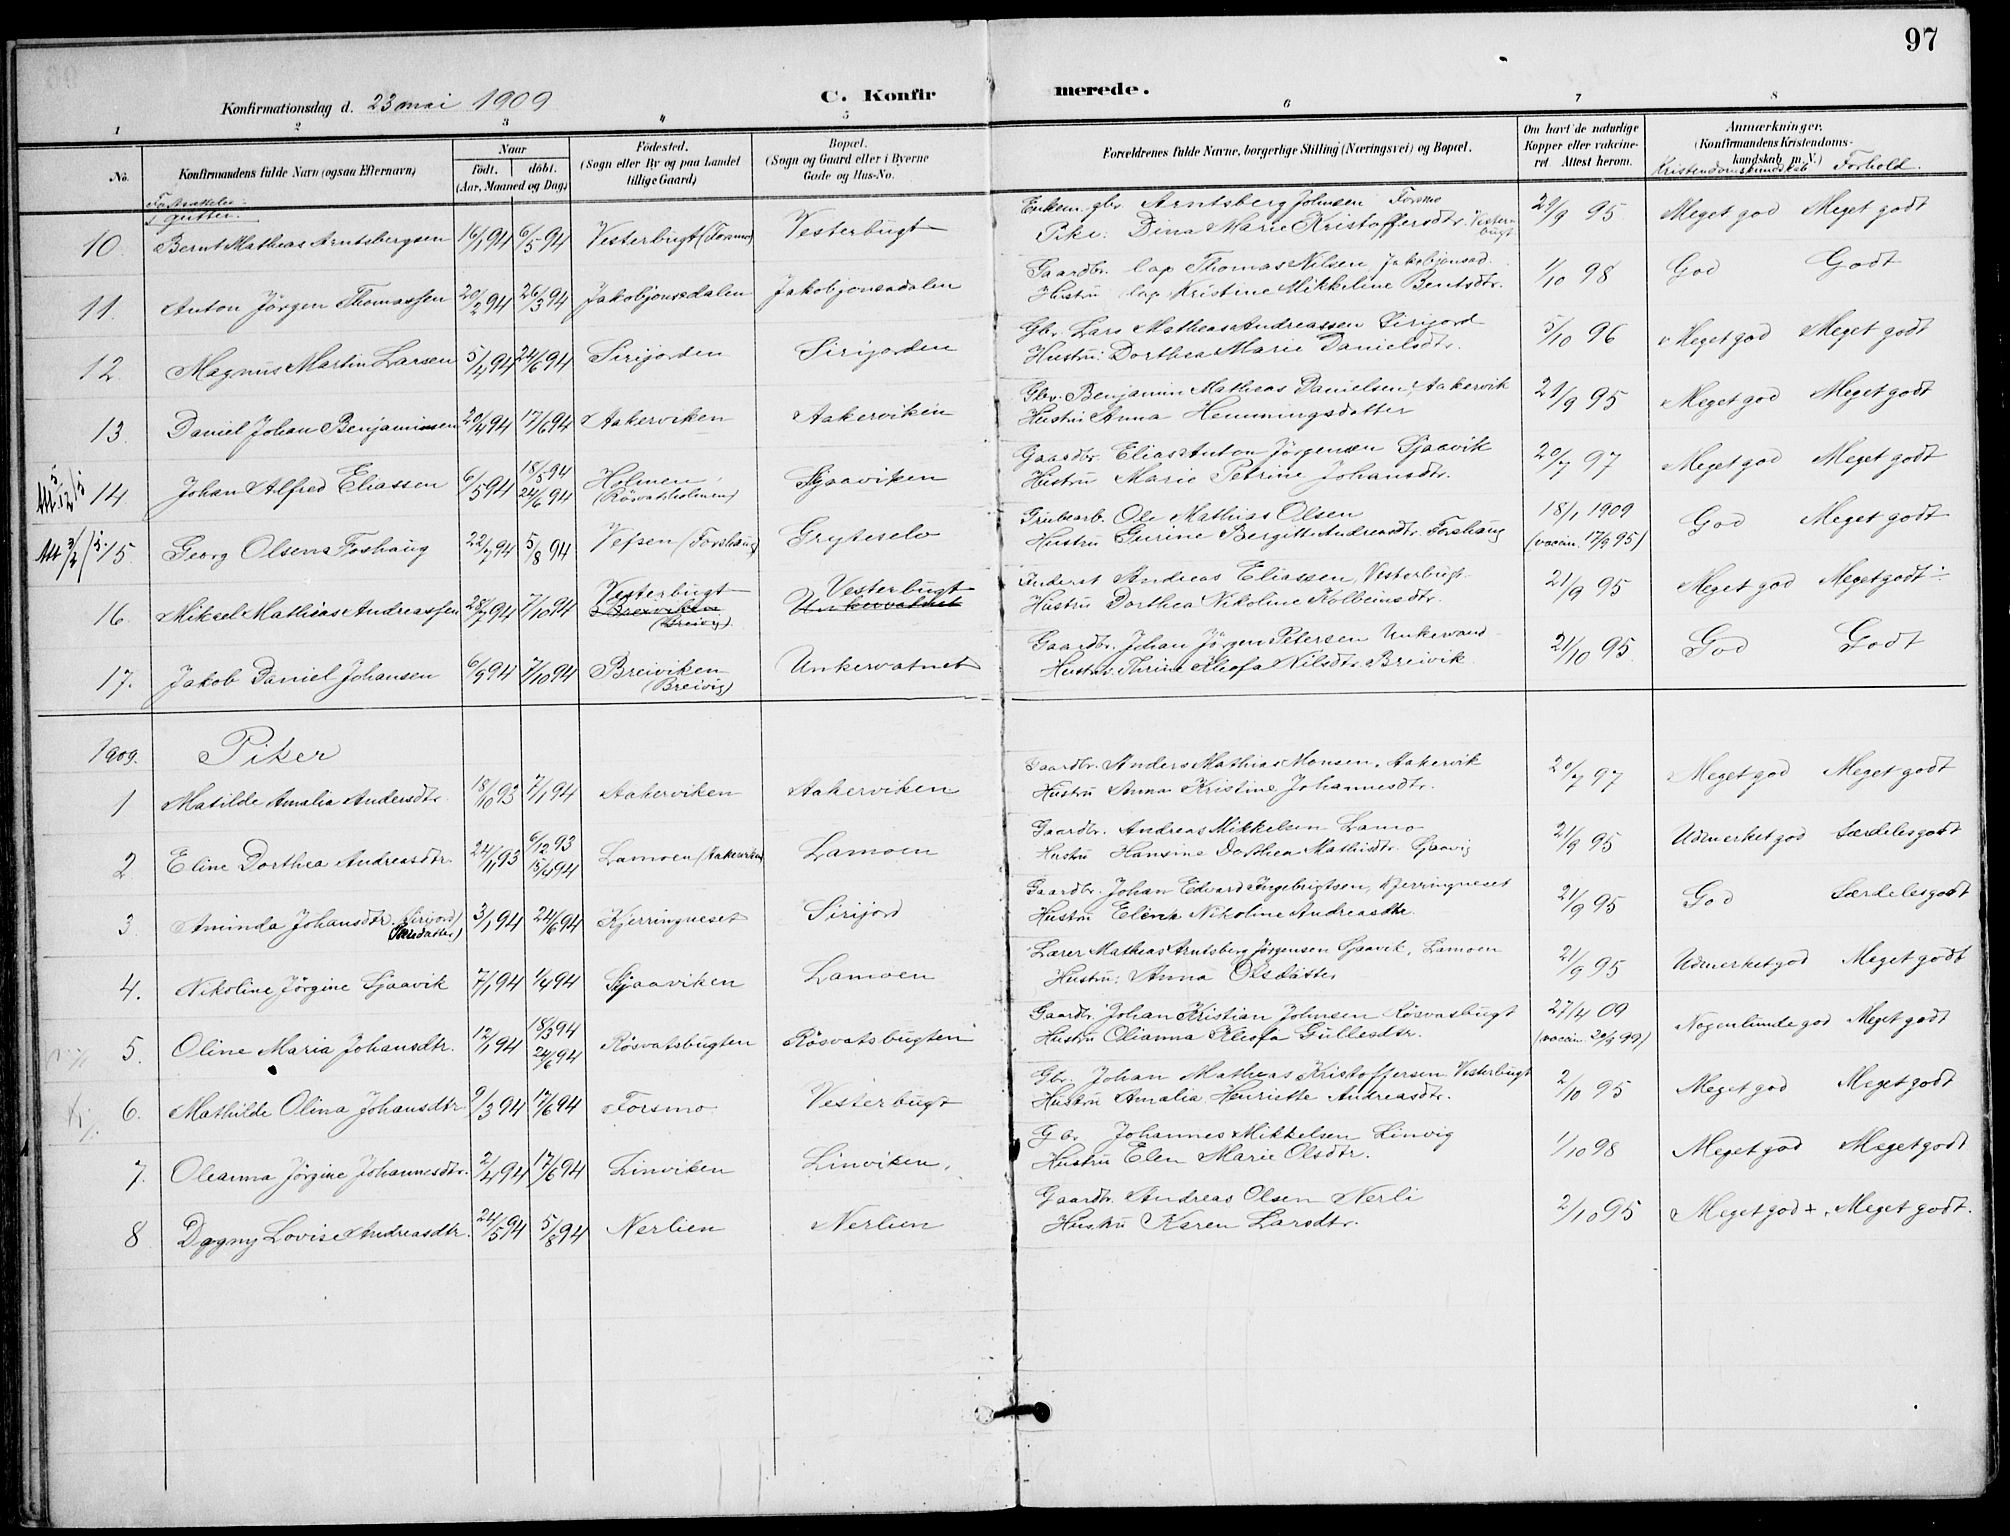 97
Konfirmationsdag d. 23 mai 1909
C. Konfirmerede.
1 2 3 4 5 6 7 8
No. Konfirmandens fulde Navn (ogsaa Efternavn) Naar født. døbt. (Aar, Maaned og Dag) Fødested. (Sogn eller By og paa Landet tillige Gaard) Bopæl. (Sogn og Gaard eller i Byerne Gade og Hus-No. Forældrenes fulde Navne, borgerlige Stilling (Næringsvei) og Bopæl. Om havt de naturlige Kopper eller vakcineret. Attest herom. Anmærkninger. (Konfirmandens Kristendomskundskab m. V.) Kristendomskundskab Forhold.
Fortsættelse: gutter.
10. Bernt Mathias Arntsbergsen 16/1 94 6/5 94 Vesterbugt (Forsmo) Vesterbugt Enkem. gbr. Arntsberg Johnsen Forsmo 21/9 95 Meget god Meget godt
Pike: Dina Marie Kristoffersdtr. Vesterbugt
11. Anton Jörgen Thomassen 20/2 94 26/3 94 Jakobjonsdalen Jakobjonsdalen Gaardbr. lap Thomas Nilsen Jakobjonsd. 1/10 98 God Godt
Hustru lap. Kristine Mikkeline Bentsdtr.
12. Magnus Martin Larsen 5/4 94 24/6 94 Sirijorden Sirijorden Gbr. Lars Mathias Andreassen Sirijord 5/10 96 Meget god Meget godt
Hustru: Dorthea Marie Danielsdtr.
13. Daniel Johan Benjaminsen 20/4 94 17/6 94 Aakerviken Aakerviken Gbr. Benjamin Mathias Danielsen, Aakervik 21/9 95 Meget god Meget godt
Hustru Anna Hemmingsdatter
14 Johan Alfred Eliassen 6/5 94 18/5 94 24/6 94 Holmen (Rösvatsholmen) Sjaaviken Gaardbr. Elias Anton Jörgensen Sjaavik 20/7 97 Meget god Meget godt
Hustru Marie Petrine Johansdtr.
15. Georg Olsen Foshaug 22/7 94 5/8 94 Vefsen (Forshaug) Gryteselv Grubearb. Ole Mathias Olsen 18/1 1909 God Meget godt
Hustru Gurine Bergitte Andreasdtr. Forshaug (vaccin. 17/9 95)
16. Mikael Mathias Andreassen 28/7 94 7/10 94 Vesterbugt Breiviken (Breivig) Vesterbugt Unkervatnet Inderst Andreas Eliassen, Vesterbugt 21/9 95 Meget god Meget godt
Hustru Dorthea Nikoline Kolbeinsdtr.
17. Jakob Daniel Johansen 6/9 94 7/10 94 Breiviken (Breivig) Unkervatnet Gaardbr. Johan Jörgen Petersen Unkervand 21/10 95 God Godt
Hustru: Trine Kleofa Nilsdtr. Breivik
1909. Piker
1 Matilde Amalia Andersdtr. 18/10 93 7/1 94 Aakerviken Aakerviken Gaardbr. Anders Mathias Monsen, Aakervik 20/7 97 Meget god Meget godt
Hustru Anna Kristine Johannesdtr.
2 Eline Dorthea Andreasdtr. 24/11 93 6/12 93 15/4 94 Lamoen (Aakerviken) Lamoen Gaardbr. Andreas Mikkelsen Lamo 21/9 95 Udmerket god Særdeles godt
Hustru Hansine Dorthea Mathisdtr. Sjaavig
3. Aminda Johansdtr. Sirijord 3/1 94 24/6 94 Kjerringneset Sirijord Gaardbr. Johan Edvard Ingebrigtsen, Kjerringneset 21/9 95 God Særdeles godt
Hustru Elena Nikoline Andreasdtr.
4. Nikoline Jörgine Sjaavik 7/1 94 1/4 94 Sjaaviken Lamoen Lærer Mathias Arntsberg Jörgensen Sjaavik, Lamoen 21/9 95 Udmerket god Meget godt
Hustru: Anna Olsdatter
5. Oline Maria Johansdtr. 12/1 94 18/3 94 24/6 94 Rösvatsbugten Rösvatsbugten Gaardbr. Johan Kristian Johnsen Rösvasbugt 27/4 09 Nogenlunde god Meget godt
Hustru Olianna Kleofa Gullesdtr. (vaccin. 20/9 99)
6. Mathilde Olina Johansdtr 9/3 94 17/6 94 Forsmo Vesterbugt Gbr. Johan Mathias Kristoffersen Vesterbugt 2/10 95 Meget god Meget godt
Hustru Amalia Henriette Andreasdtr.
7. Oleanna Jörgine Johannesdtr. 2/4 94 17/6 94 Linviken Linviken Gbr Johannes Mikkelsen Linvig 1/10 98 Meget god Meget godt
Hustru Elen Marie Olsdtr.
8 Dagny Lovise Andreasdtr. 24/5 94 5/8 94 Nerlien Nerlien Gaardbr. Andreas Olsen Nerli 2/10 95 Meget god +. Meget godt.
Hustru Karen Larsdtr.